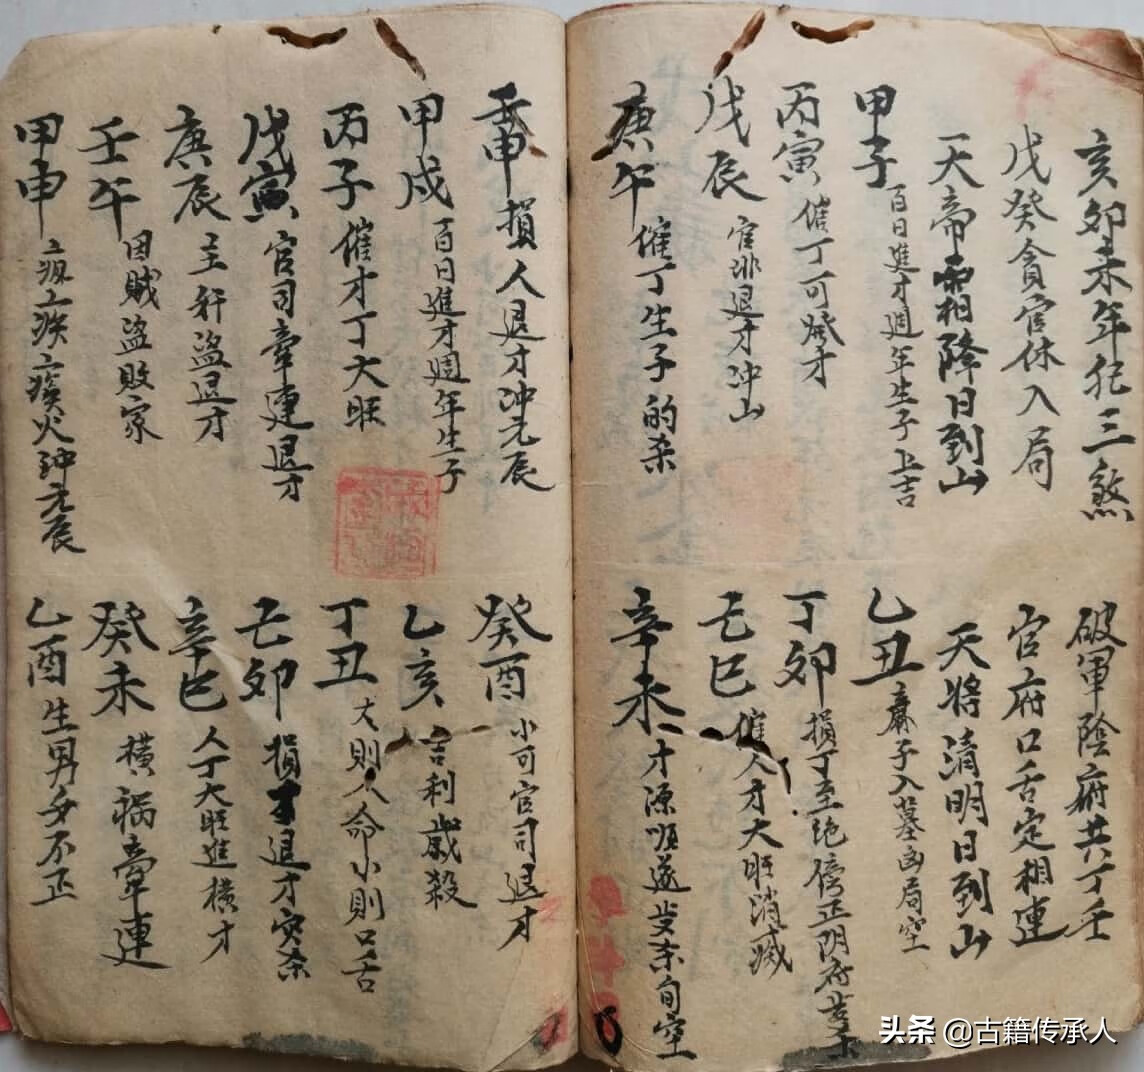 亥卯未年犯三煞
破軍陰府共丁壬
戊癸貪官休入局
官府口舌定相連
天帝霜降日到山
天將清明日到山
甲子 百日進才週年生子上吉
乙丑 麻子入墓 局空
丙寅 催丁可發才
丁卯 損丁至絕傍正阴府
戊辰 官非退才冲山
己巳 催人才大旺消滅
庚午 催丁生子的杀
辛未 才源順遂歩杀旬空
壬申 損人退才冲元辰
癸酉 小可官司退才
甲戌 百日進才週年生子
乙亥 吉利歲殺
丙子 催才丁大旺
丁丑 大則人命小則口舌
戊寅 官司牽連退才
己卯 損才退才灾杀
庚辰 主奸盜退才
辛巳 人丁大旺進橫才
壬午 因賊盜敗家
癸未 橫禍牽連
甲申 火冲元辰
乙酉 生男女不正
头条 @古籍传承人